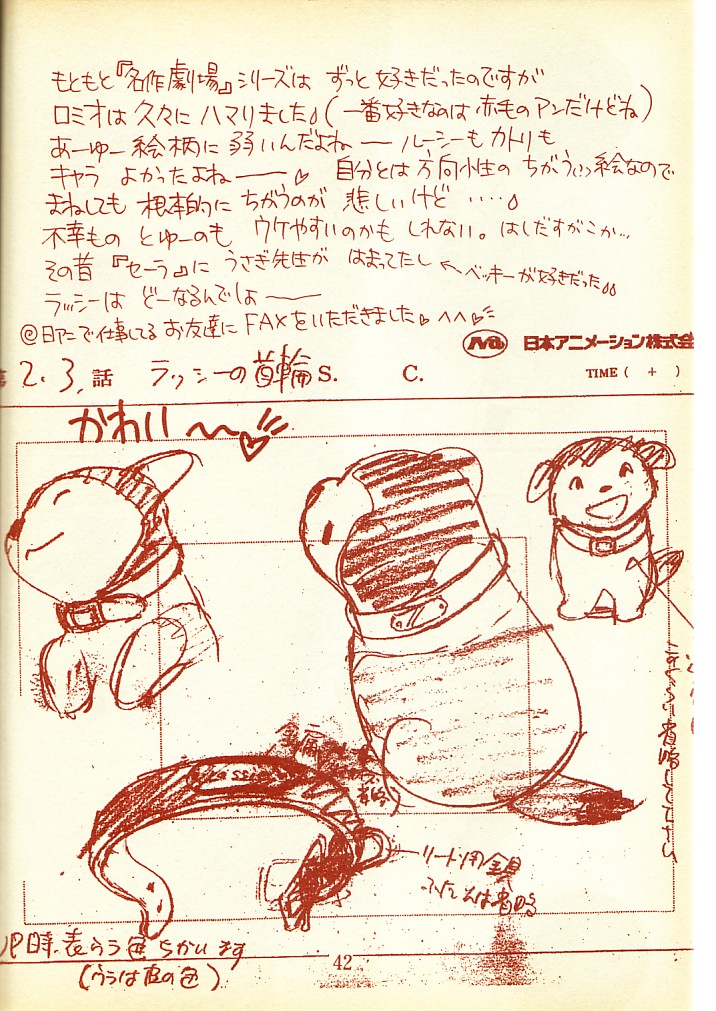 もともと『名作劇場』シリーズは ずっと好きだったのですが
ロミオは久々に ハマりました♪(一番好きなのは赤毛のアンだけどね)
あーゆー絵柄に弱いんだよね── ルーシーもカトリも
キャラ よかったよね──♡ 自分とは方向性の ちがう(いい)絵なので
まねしても 根本的に ちがうのが 悲しいけど ‥‥
不幸もの とゆーのも ウケやすいのかもしれない。はしだすがこか…
その昔『セーラ』に うさぎ先生が はまってたし ←ベッキーが好きだった
ラッシーは どーなるんでしょ〜
@日アニで仕事してる お友達に FAXをいただきました♡ ^^♡
日本アニメーション株式会
2.3.話 ラッシーの首輪 S. C. TIME( + )
かわいい〜♡
Lassie
金属
リード用金具
ふだんは省略
OP時、表とうら色ちがいます
(ウラは皮の色)
42